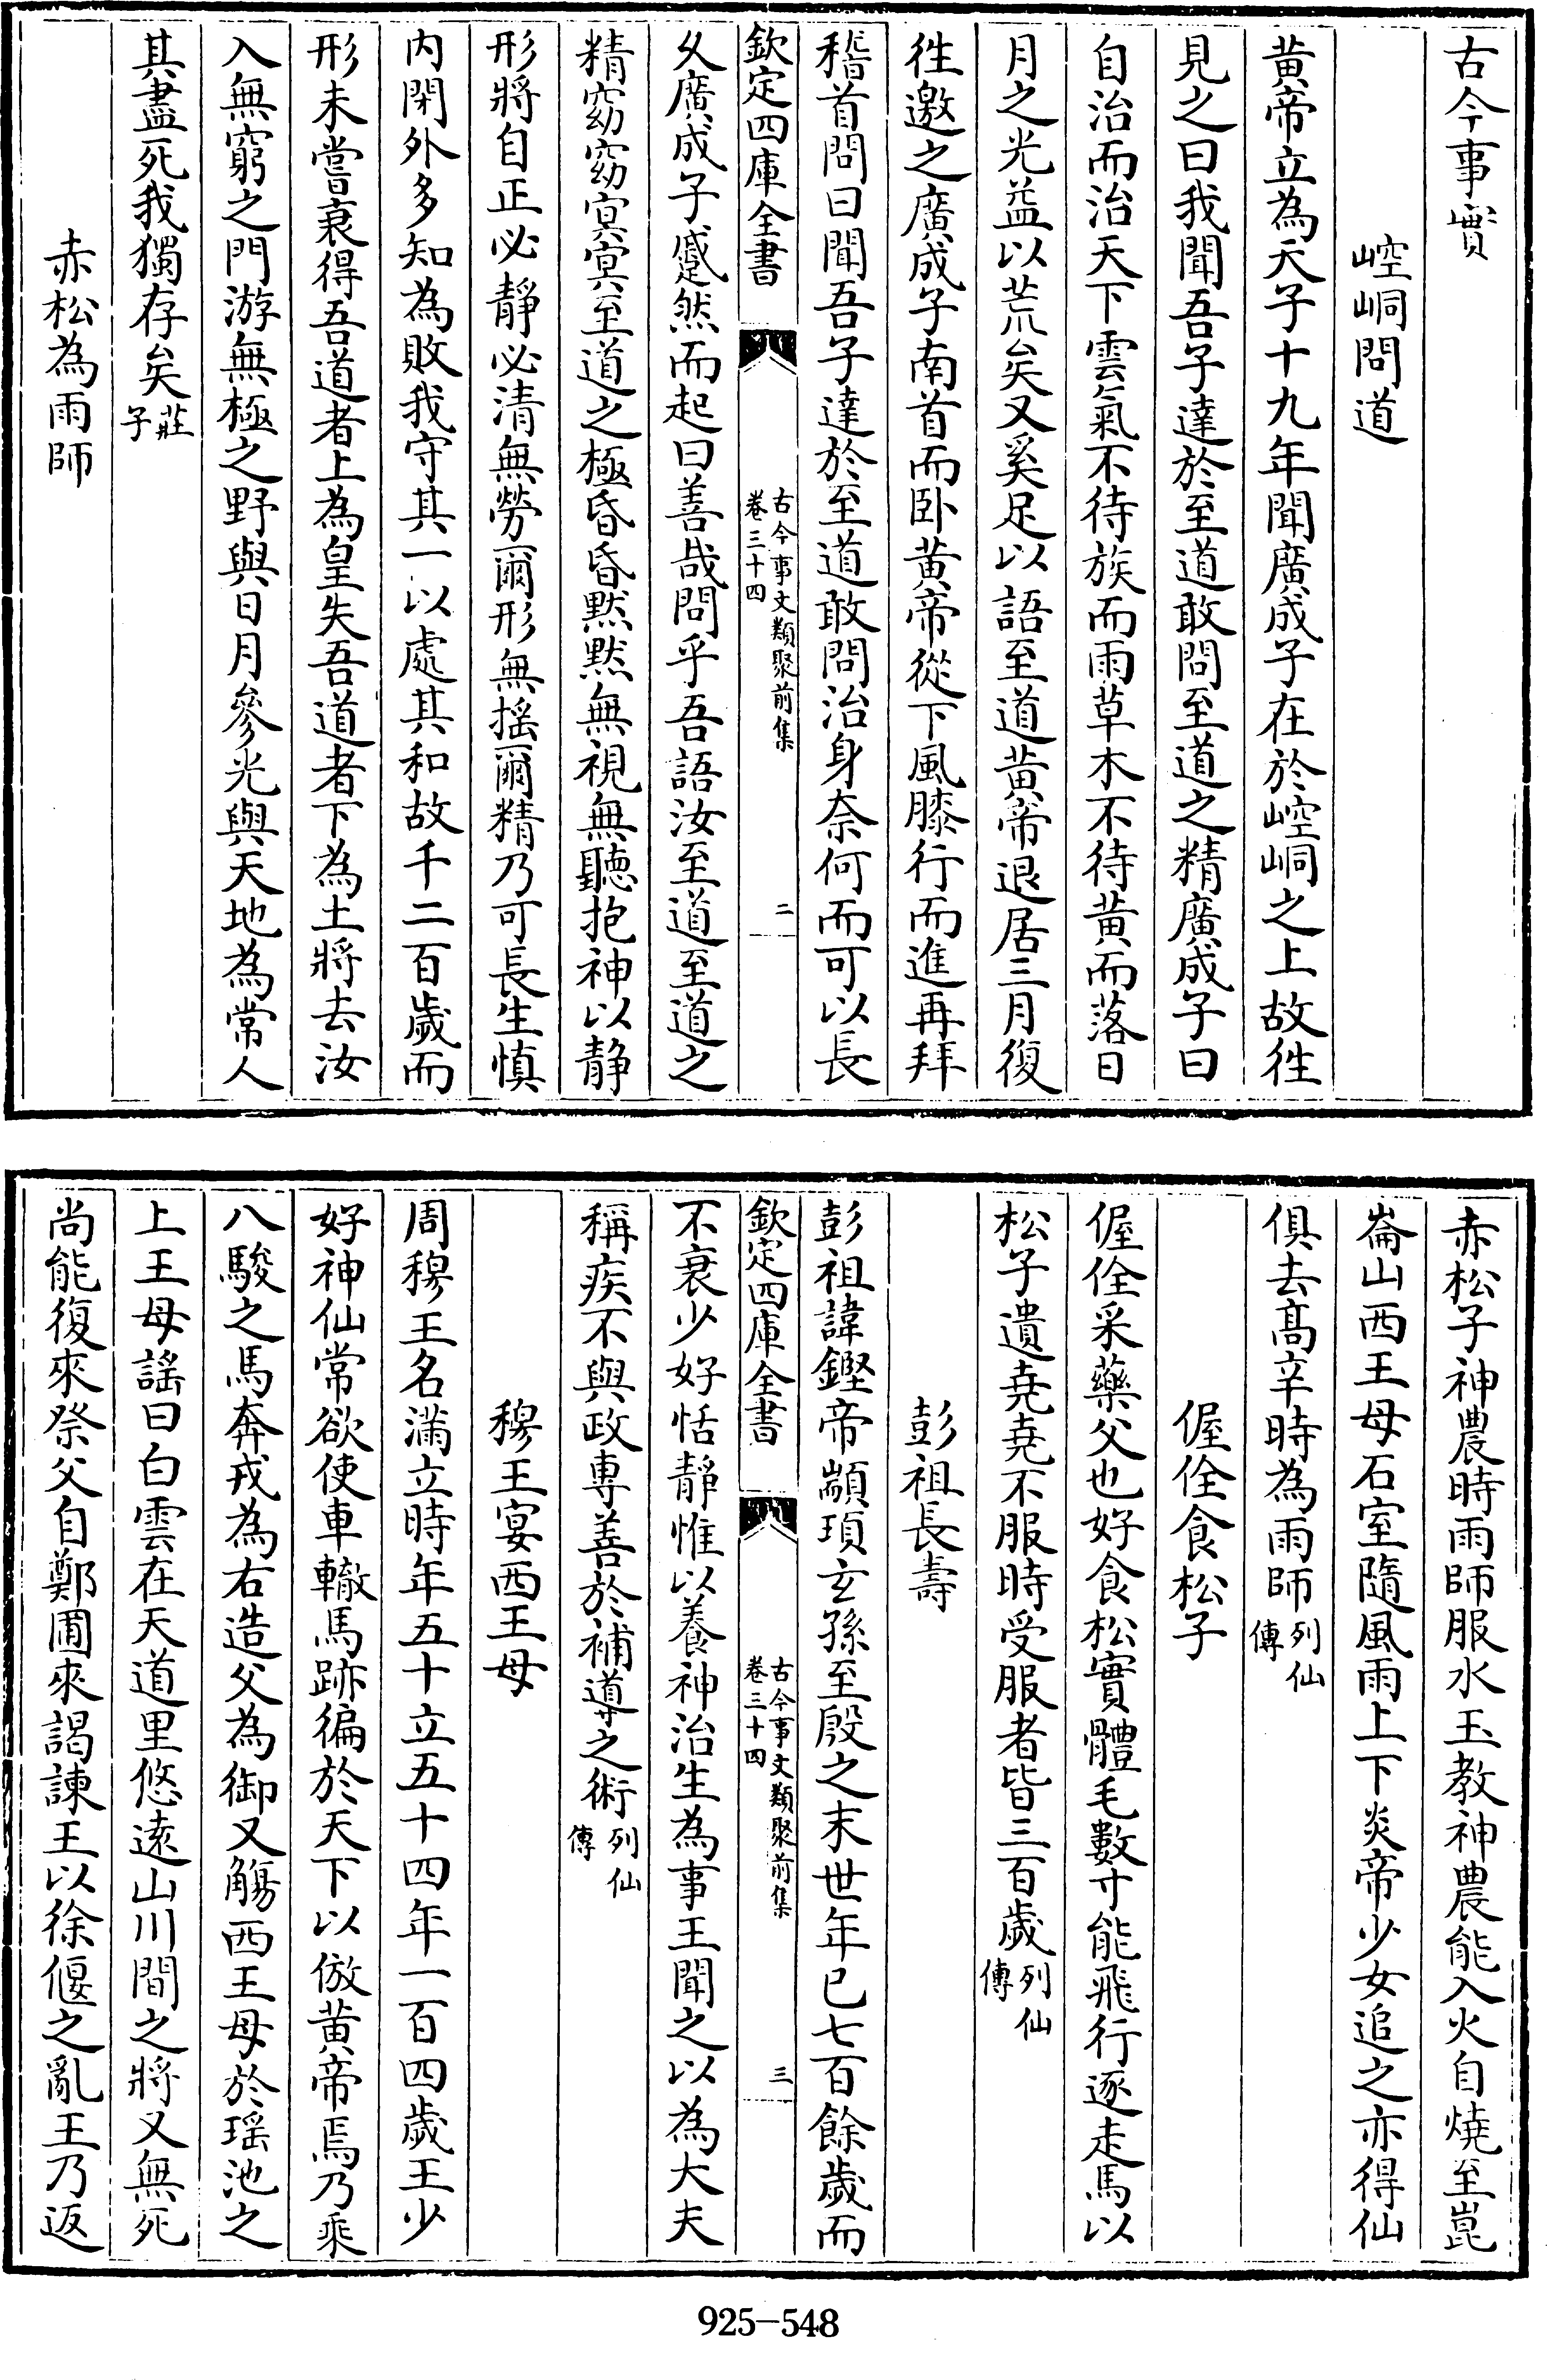 古今事實
崆峒問道
黄帝立為天子十九年聞廣成子在於崆峒之上故徃
見之曰我聞吾子達於至道敢問至道之精廣成子曰
自治而治天下雲氣不待族而雨草木不待黄而落日
月之光益以荒矣又奚足以語至道黄帝退居三月復
徃邀之廣成子南首而卧黄帝從下風膝行而進再拜
稽首問曰聞吾子達於至道敢問治身奈何而可以長
欽定四庫全書
古今事文類聚前集
卷三十四
二
乆廣成子蹙然而起曰善哉問乎吾語汝至道至道之
精窈窈㝠㝠至道之極昏昏黙黙無視無聽抱神以静
形將自正必静必清無勞爾形無揺爾精乃可長生慎
内閑外多知為敗我守其一以處其和故千二百歲而
形未嘗衰得吾道者上為皇失吾道者下為土將去汝
入無窮之門游無極之野與日月參光與天地為常人
其盡死我獨存矣莊子
赤松為雨師
赤松子神農時雨師服水玉教神農能入火自燒至崑
崙山西王母石室隨風雨上下炎帝少女追之亦得仙
俱去髙辛時為雨師列仙傳
偓佺食松子
偓佺采藥父也好食松實體毛數寸能飛行逐走馬以
松子遺堯堯不服時受服者皆三百歲列仙傳
彭祖長壽
彭祖諱鏗帝顓頊玄孫至殷之末世年已七百餘歲而
欽定四庫全書
古今事文類聚前集
卷三十四
三
不衰少好恬靜惟以養神治生為事王聞之以為大夫
稱疾不與政専善於補導之術列仙傳
穆王宴西王母
周穆王名滿立時年五十立五十四年一百四歲王少
好神仙常欲使車轍馬跡徧於天下以倣黄帝焉乃乘
八駿之馬奔戎為右造父為御又觴西王母於瑶池之
上王母謡曰白雲在天道里悠逺山川間之將又無死
尚能復來祭父自鄭圃來謁諫王以徐偃之亂王乃返
925-548